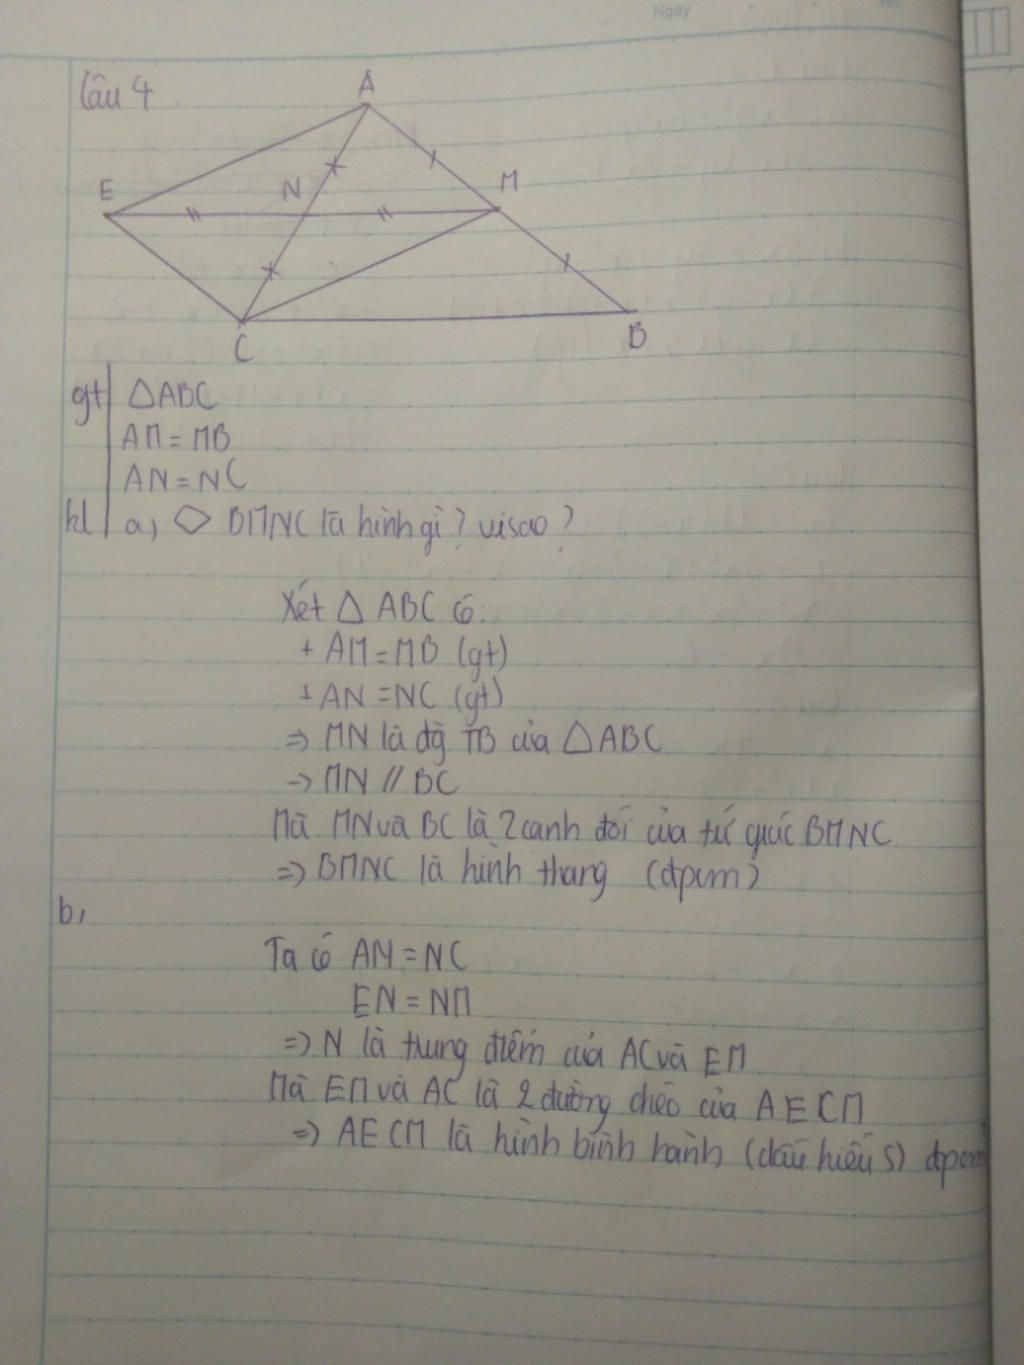 Ngày No.
Câu 4
A
E N M
C B
gt △ABC
AM = MB
AN = NC
kl a, ◇ BMNC là hình gì? vì sao?
Xét △ ABC có:
+ AM = MB (gt)
+ AN = NC (gt)
=> MN là đg TB của △ABC
-> MN // BC
Mà MN và BC là 2 cạnh đối của tứ giác BMNC
=> BMNC là hình thang (đpcm)
b,
Ta có AN = NC
EN = NM
=> N là trung điểm của AC và EM
Mà EM và AC là 2 đường chéo của AECM
=> AECM là hình bình hành (dấu hiệu 5) đpcm